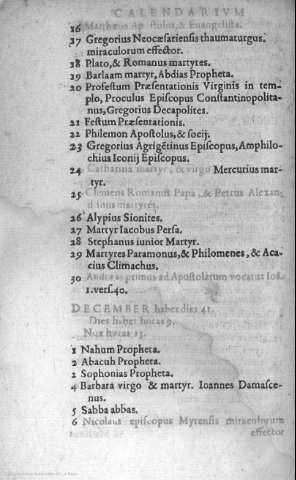 CALENDARIVM
16 Matthæus Apostolus, & Euangelista.
37 Gregorius Neocæsariensis thaumaturgus,
miraculorum effector.
28 Plato, & Romanus martyres.
29 Barlaam martyr, Abdias Propheta.
20 Profestum Præsentationis Virginis in tem-
plo, Proculus Episcopus Constantinopolita-
nus, Gregorius Decapolites.
21 Festum Præsentationis.
22 Philemon Apostolus, & socij.
23 Gregorius Agrigētinus Episcopus, Amphilo-
chius Iconij Episcopus.
24 Catharina martyr, & virgo Mercurius mar-
tyr.
25 Clemens Romanus Papa, & Petrus Alexan
drinus martyres.
26 Alypius Sionites.
27 Martyr Iacobus Persa.
28 Stephanus iunior Martyr.
29 Martyres Paramonus, & Philomenes, & Aca
cius Climachus,
30 Andreas primus ad Apostolatum vocatus Ioā.
1. vers. 40.
DECEMBER habet dies 31.
Dies habet horas 9.
Nox horas 15.
1 Nahum Propheta.
2 Abacuh Propheta.
2 Sophonias Propheta.
4 Barbara virgo & martyr. Ioannes Damasce-
nus.
5 Sabba abbas.
6 Nicolaus episcopus Myrensis miraculorum
effector